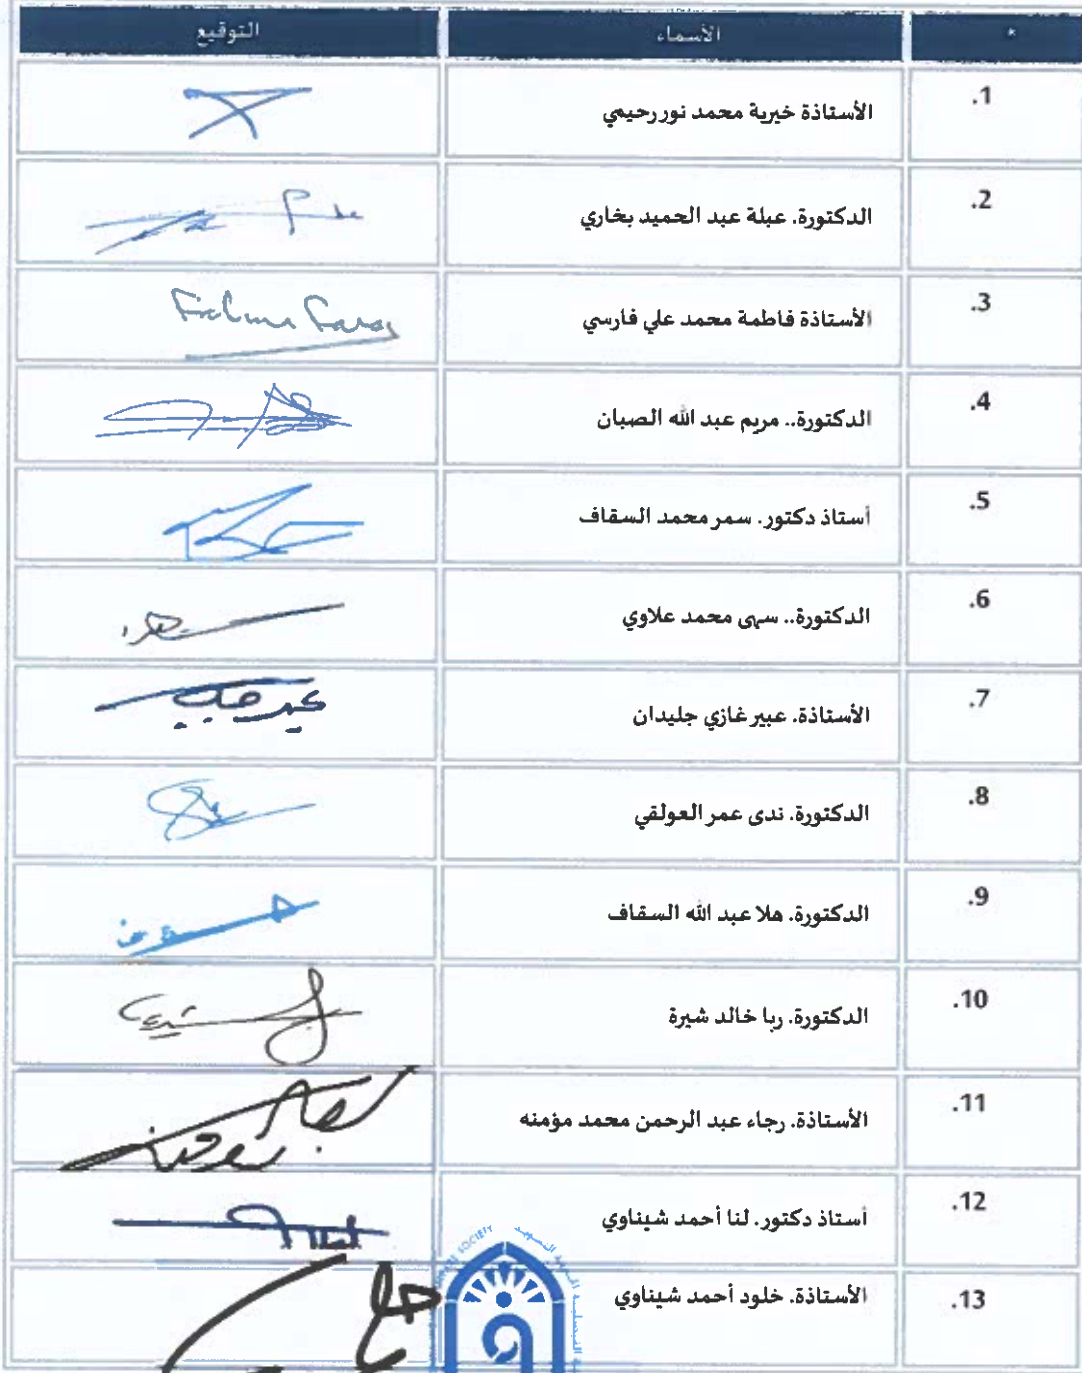 * الأسماء التوقيع
.1 الأستاذة خيرية محمد نور رحيمي
.2 الدكتورة. عبلة عبد الحميد بخاري
.3 الأستاذة فاطمة محمد علي فارسي
.4 الدكتورة.. مريم عبد الله الصبان
.5 أستاذ دكتور. سمر محمد السقاف
.6 الدكتورة.. سهى محمد علاوي
.7 الأستاذة. عبير غازي جليدان
.8 الدكتورة. ندى عمر العولقي
.9 الدكتورة. هلا عبد الله السقاف
.10 الدكتورة. ربا خالد شيرة
.11 الأستاذة. رجاء عبد الرحمن محمد مؤمنه
.12 أستاذ دكتور. لنا أحمد شيناوي
.13 الأستاذة. خلود أحمد شيناوي
SOCIETY